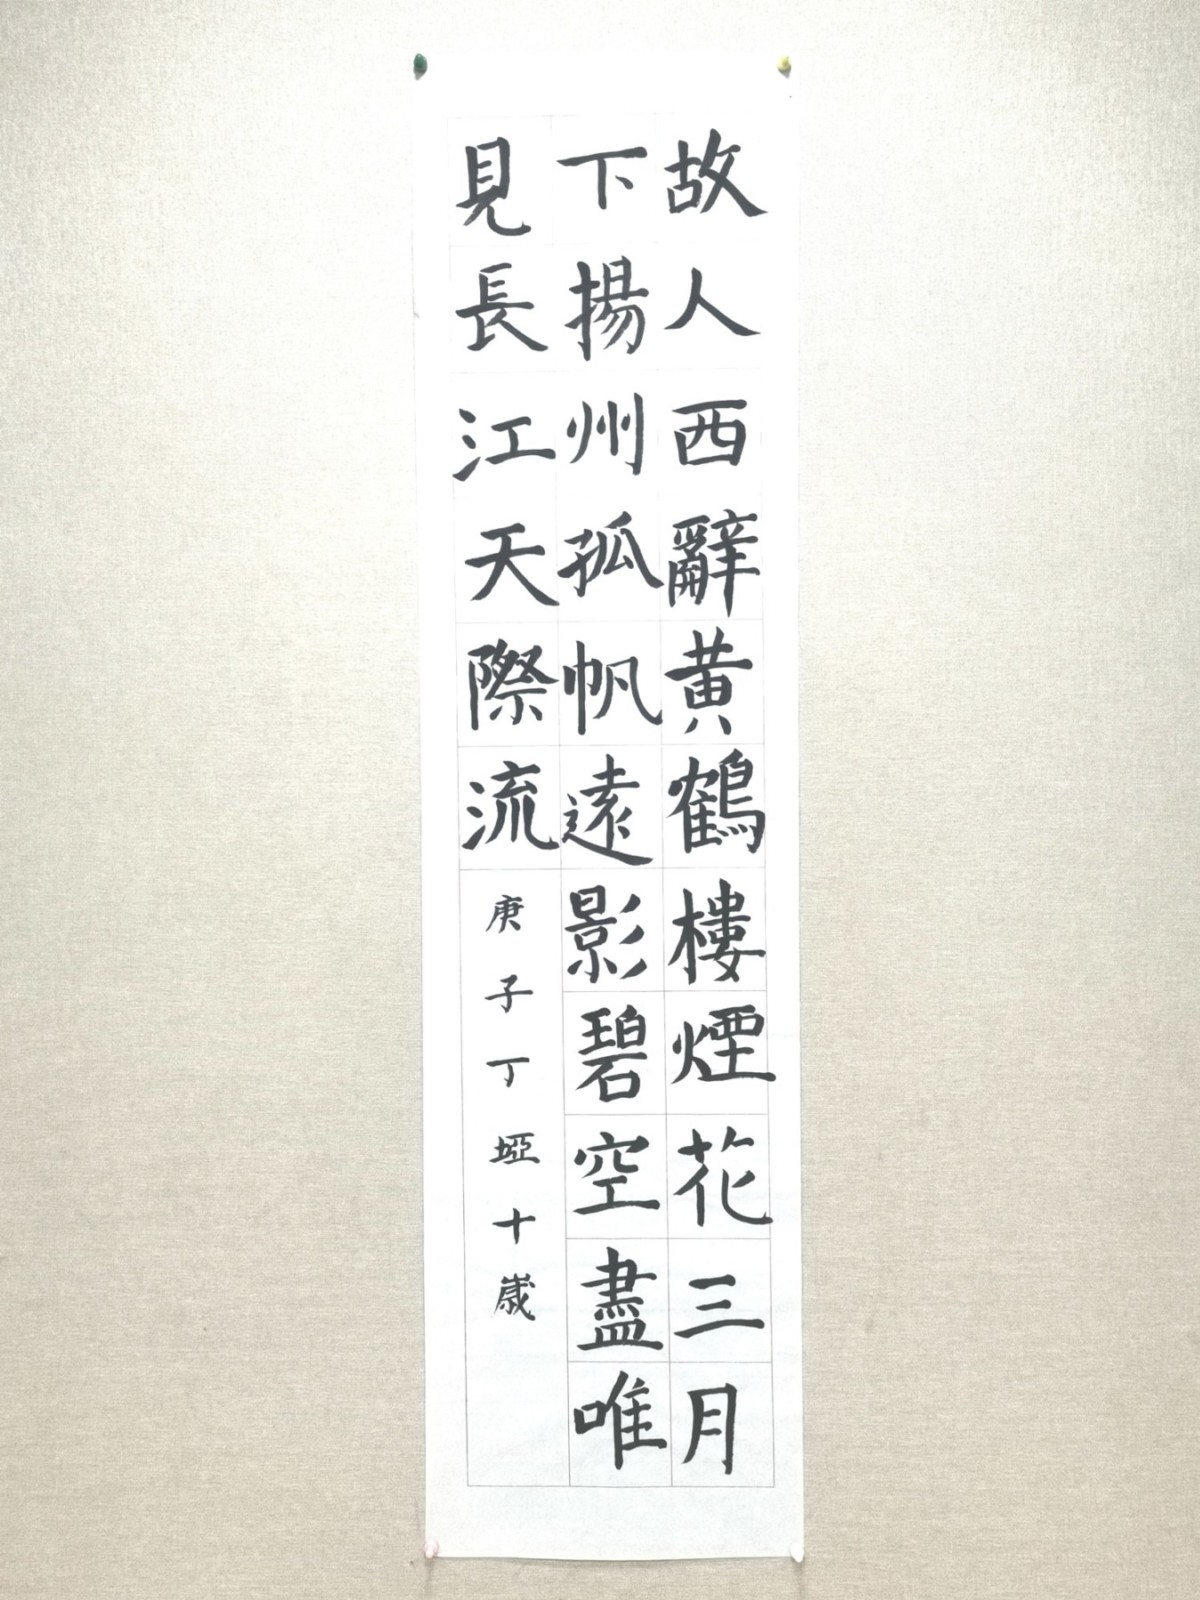 故人西辭黄鶴樓煙花三月
下揚州孤帆遠影碧空盡唯
見長江天際流
庚子丁埡十歲